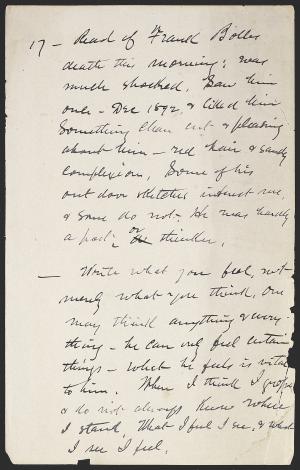 17 - Read of Frank Bolles
death this morning; was
much shocked. Saw him
once - Dec 1892 & liked him
Something clean cut & pleasing
about him - red hair & sandy
complexion. Some of his
out door sketches interest me,
& some do not. He was hardly
a poet, or thinker.
- Write what you feel, not
merely what you think. One
may think anything & every-
thing - he can only feel certain
things - what he feels is vital
to him. When I think I grope
& do not always know where
I stand. What I feel I see, & what
I see I feel.